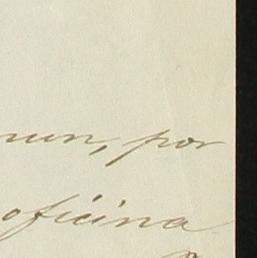 nun, por
oficina